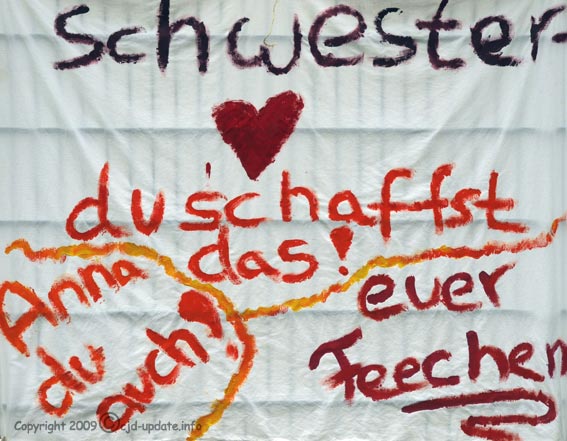 schwester-
du schaffst
das!
Anna
du
auch!
euer
Feechen
Copyright 2009 ©cjd-update.info